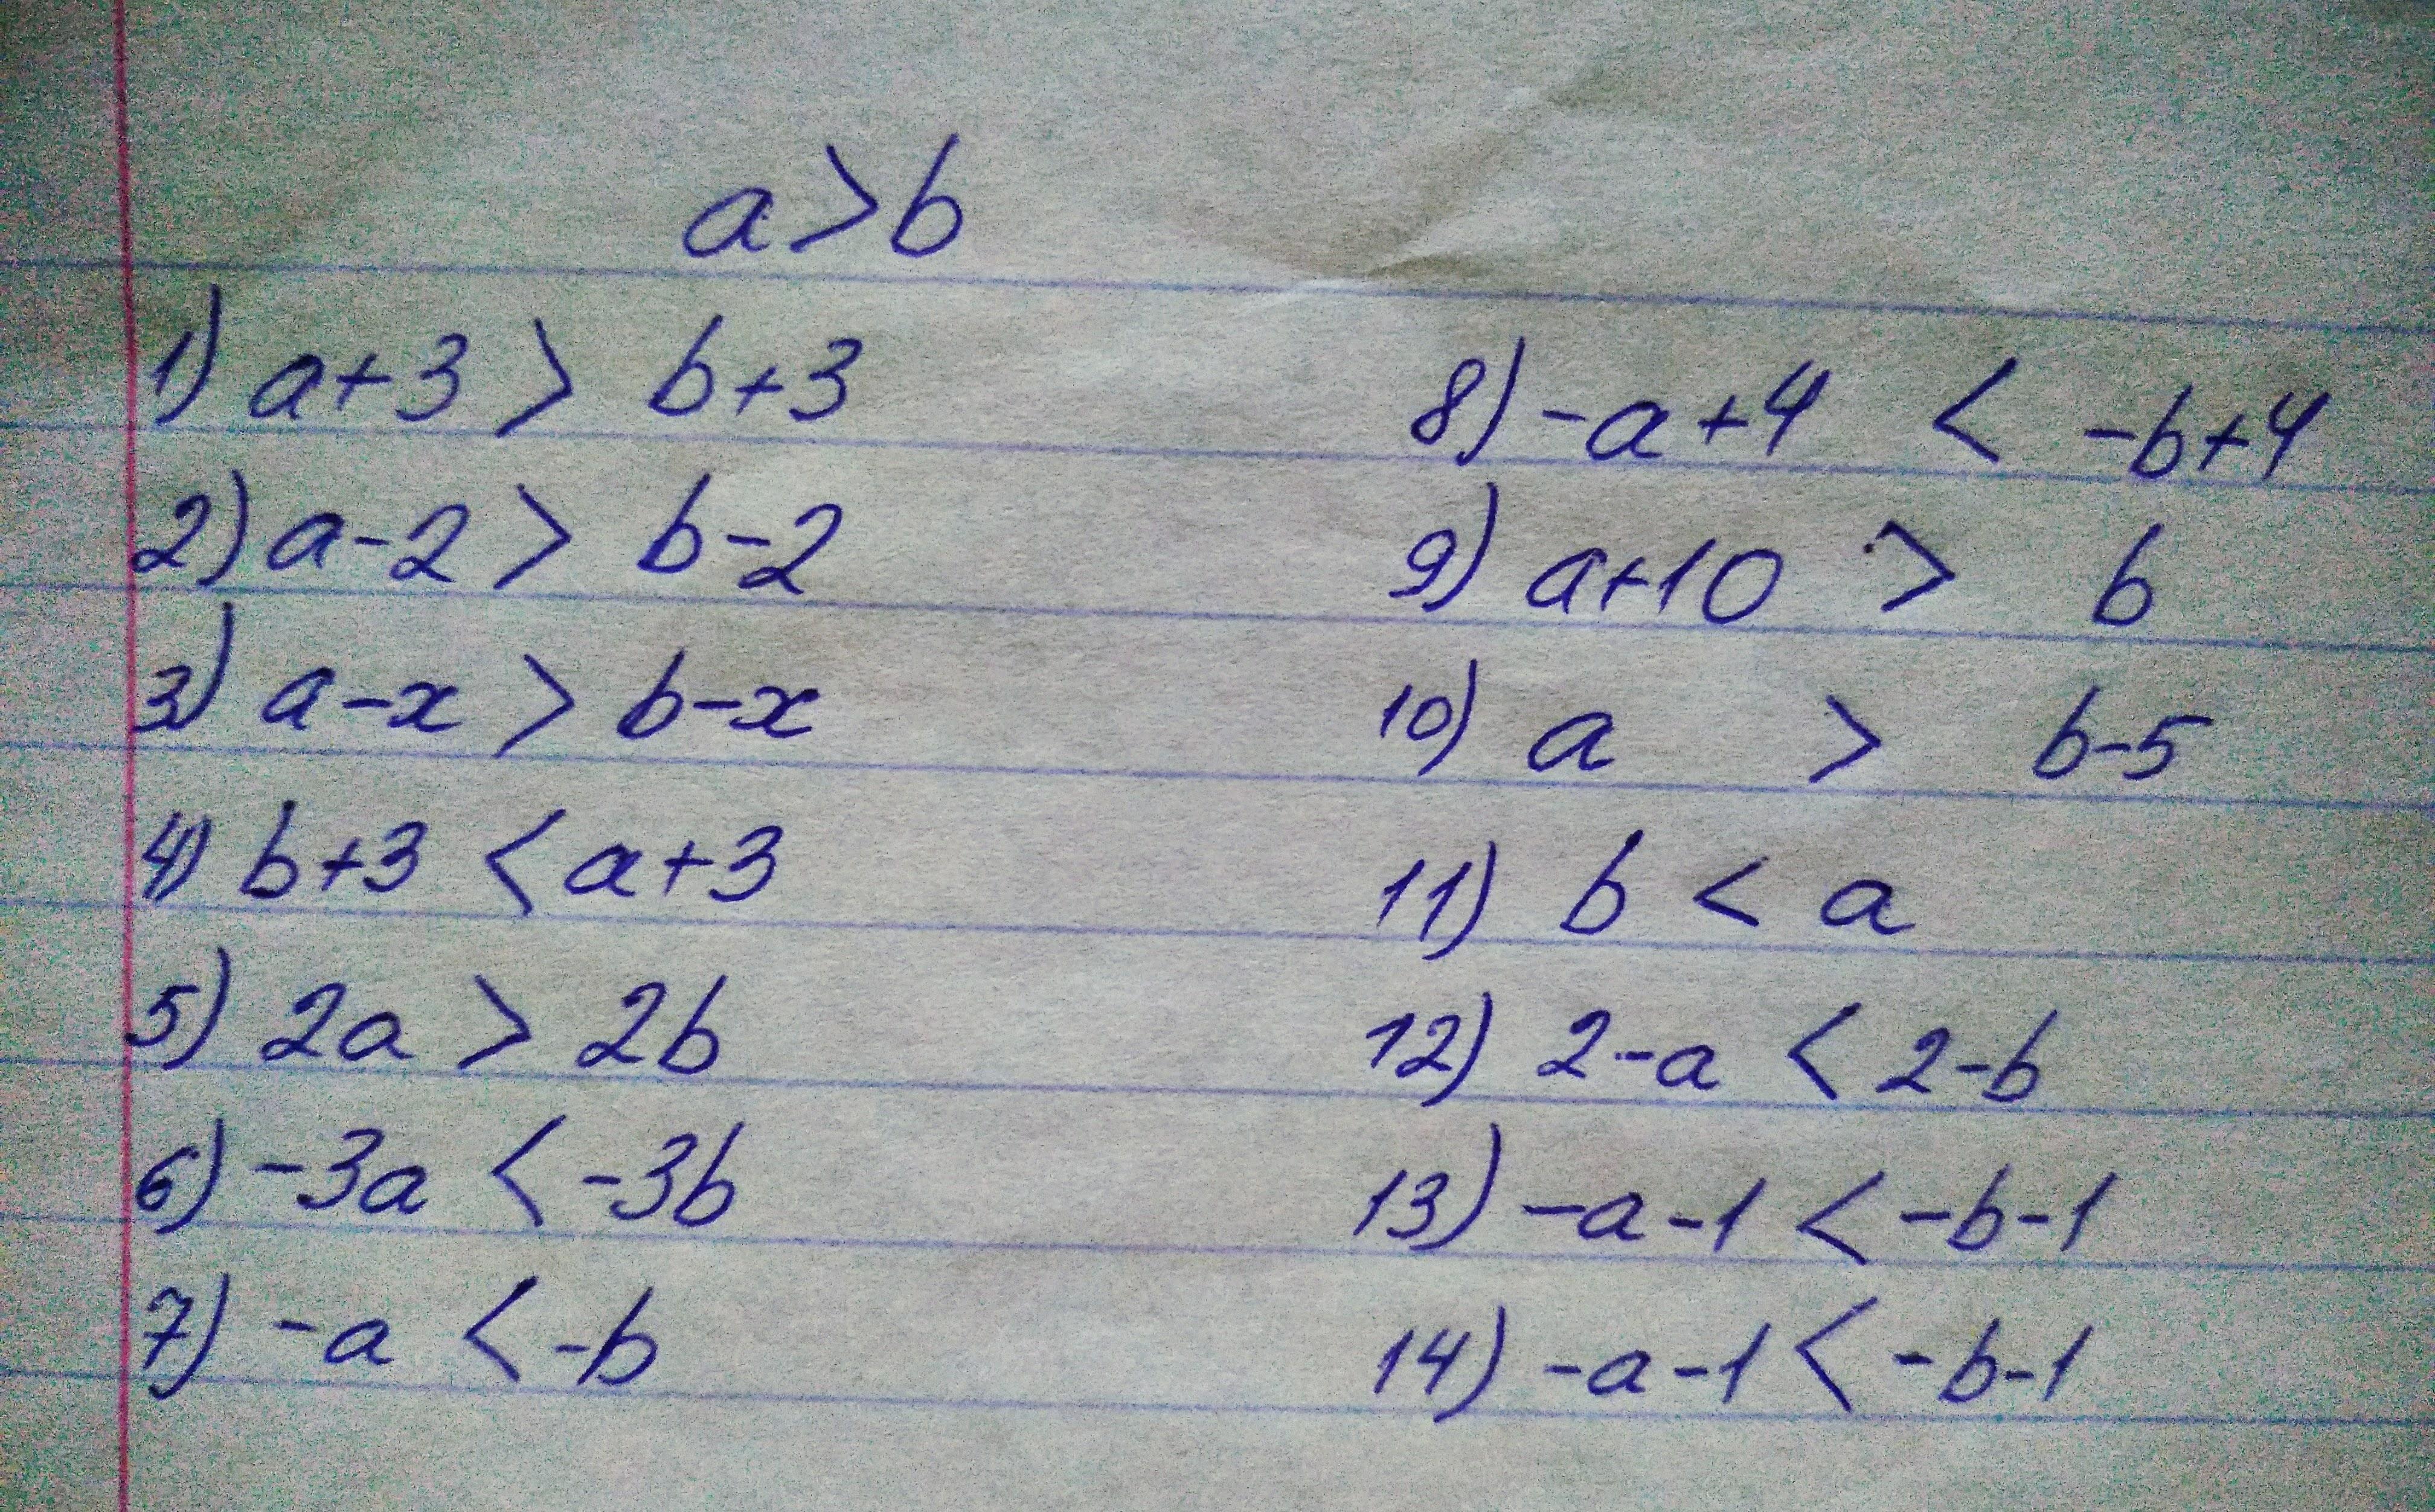 a>b
1) a+3 > b+3
2) a-2 > b-2
3) a-x > b-x
4) b+3 < a+3
5) 2a > 2b
6) -3a < -3b
7) -a < -b
8) -a+4 < -b+4
9) a+10 > b
10) a > b-5
11) b < a
12) 2-a < 2-b
13) -a-1 < -b-1
14) -a-1 < -b-1